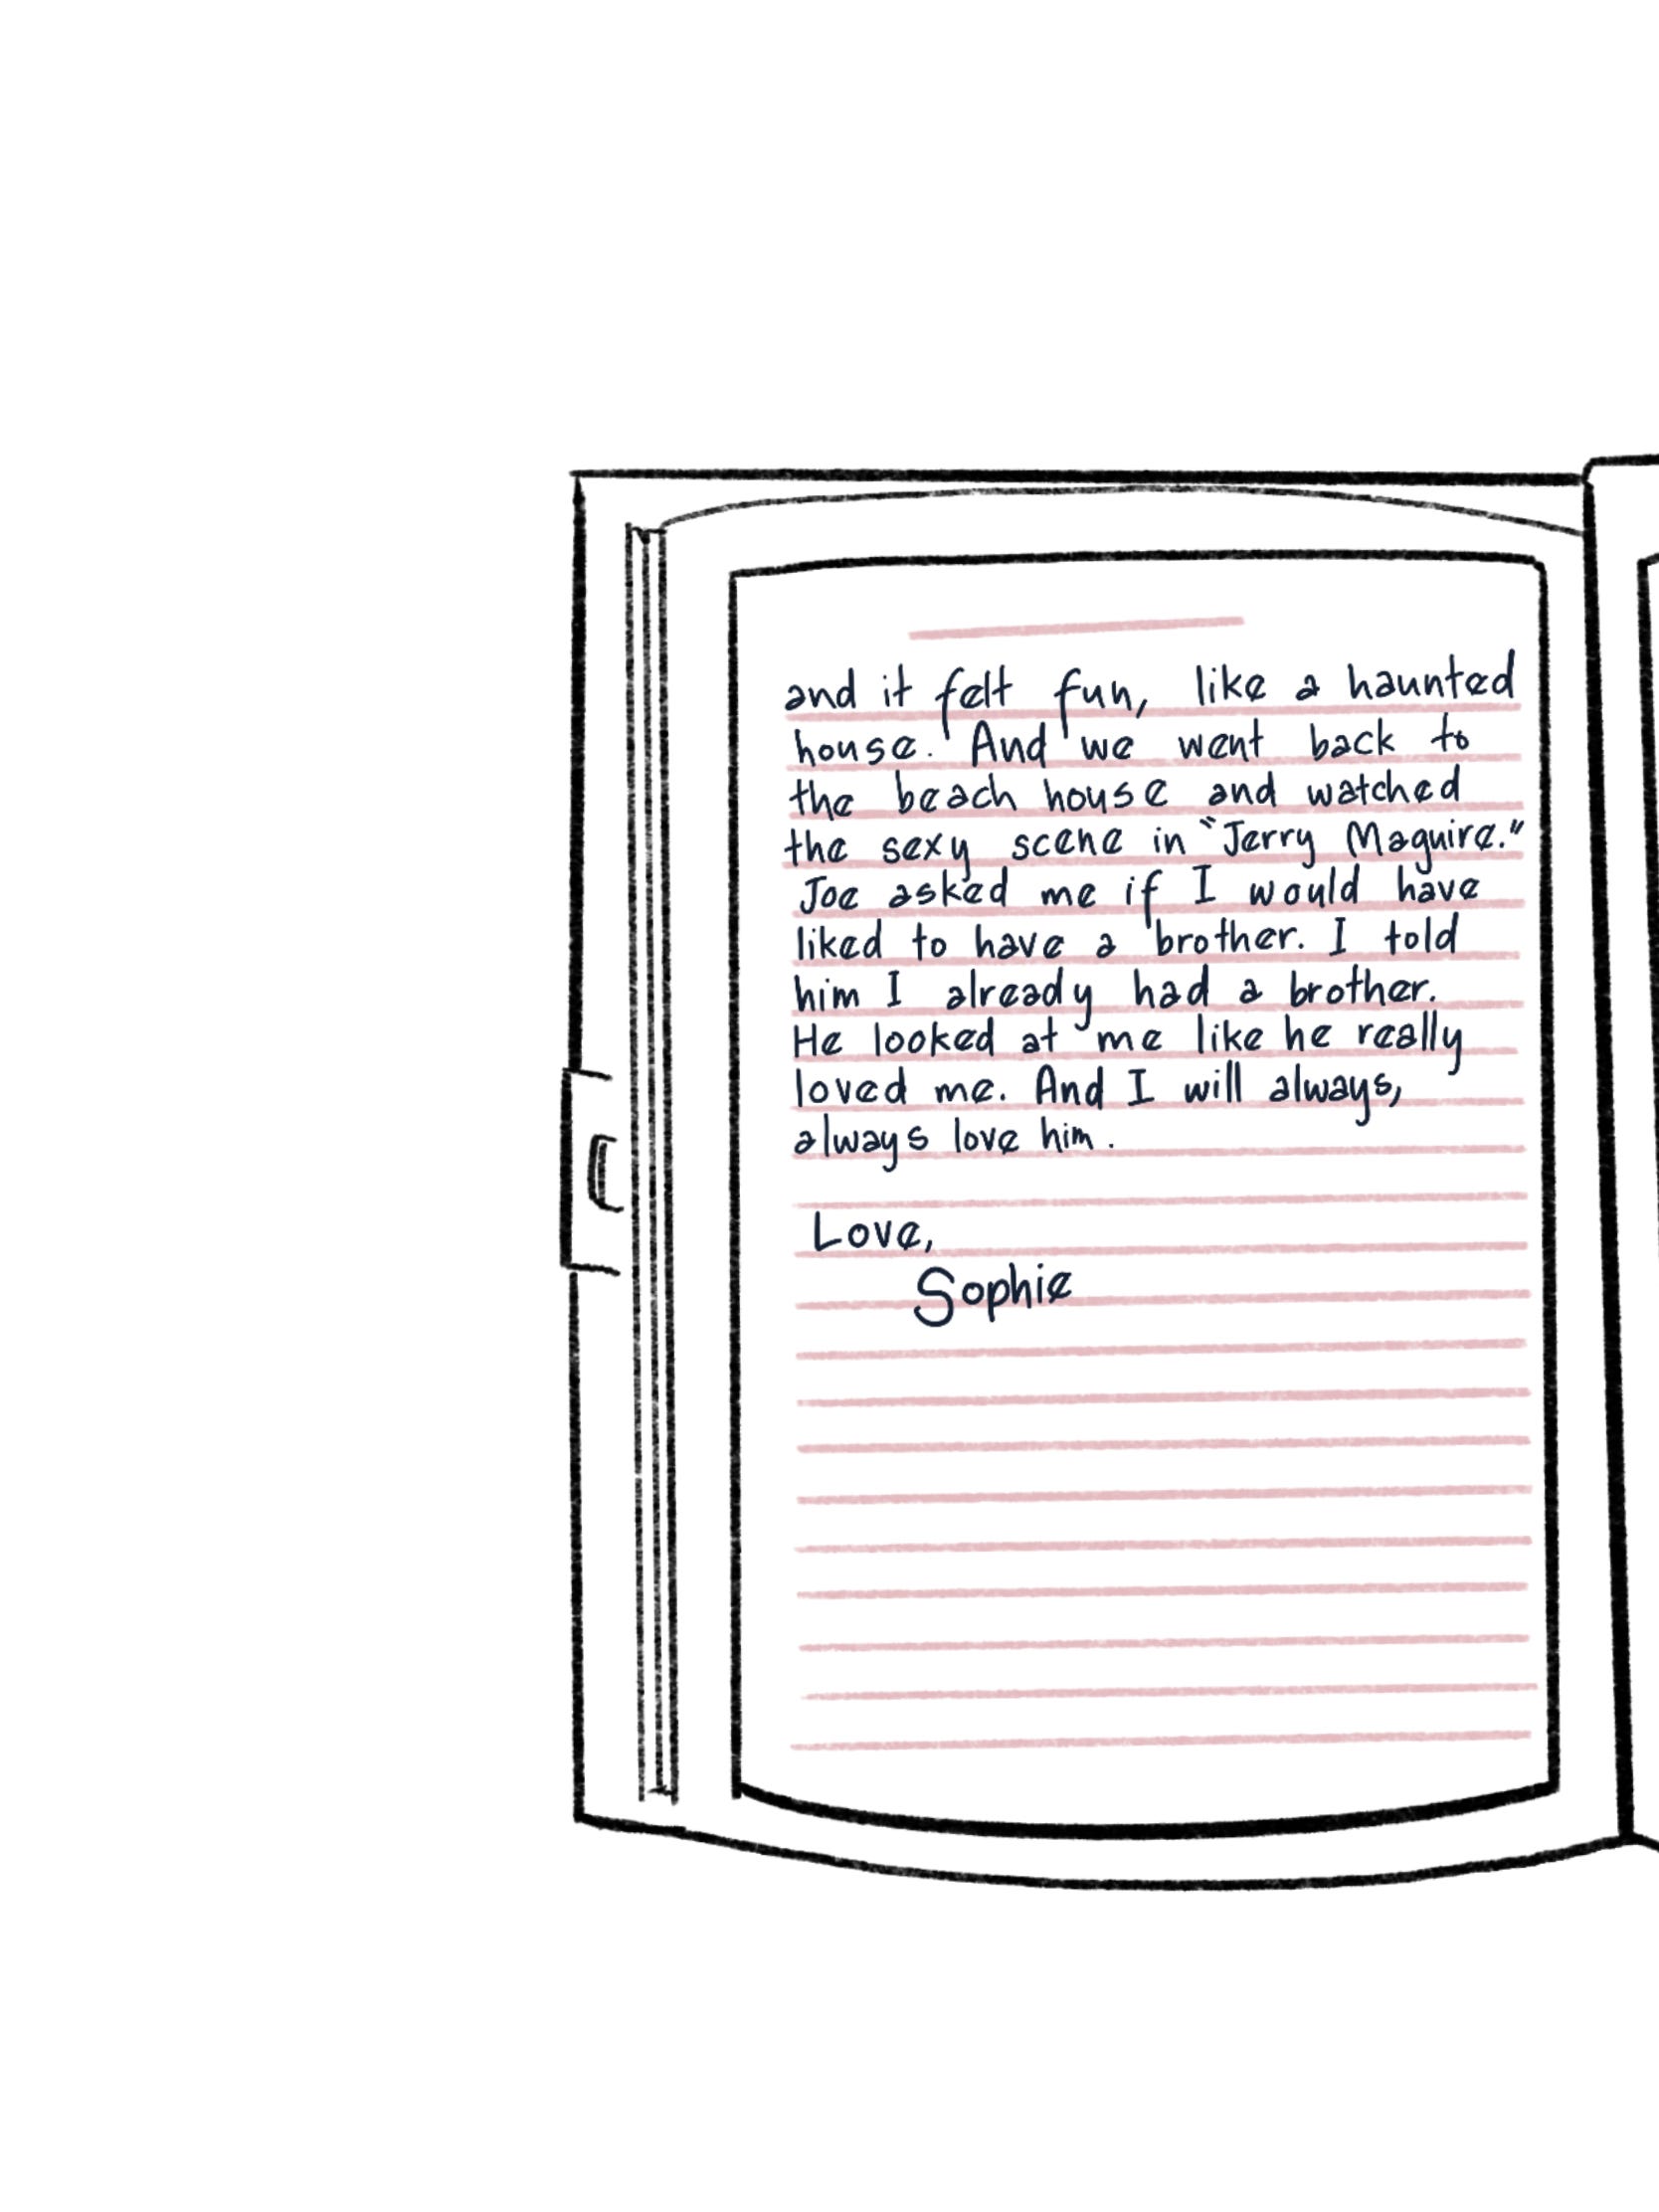 and it felt fun, like a haunted
house. And we went back to
the beach house and watched
the sexy scene in "Jerry Maguire."
Joe asked me if I would have
liked to have a brother. I told
him I already had a brother.
He looked at me like he really
loved me. And I will always,
always love him.
Love,
Sophie